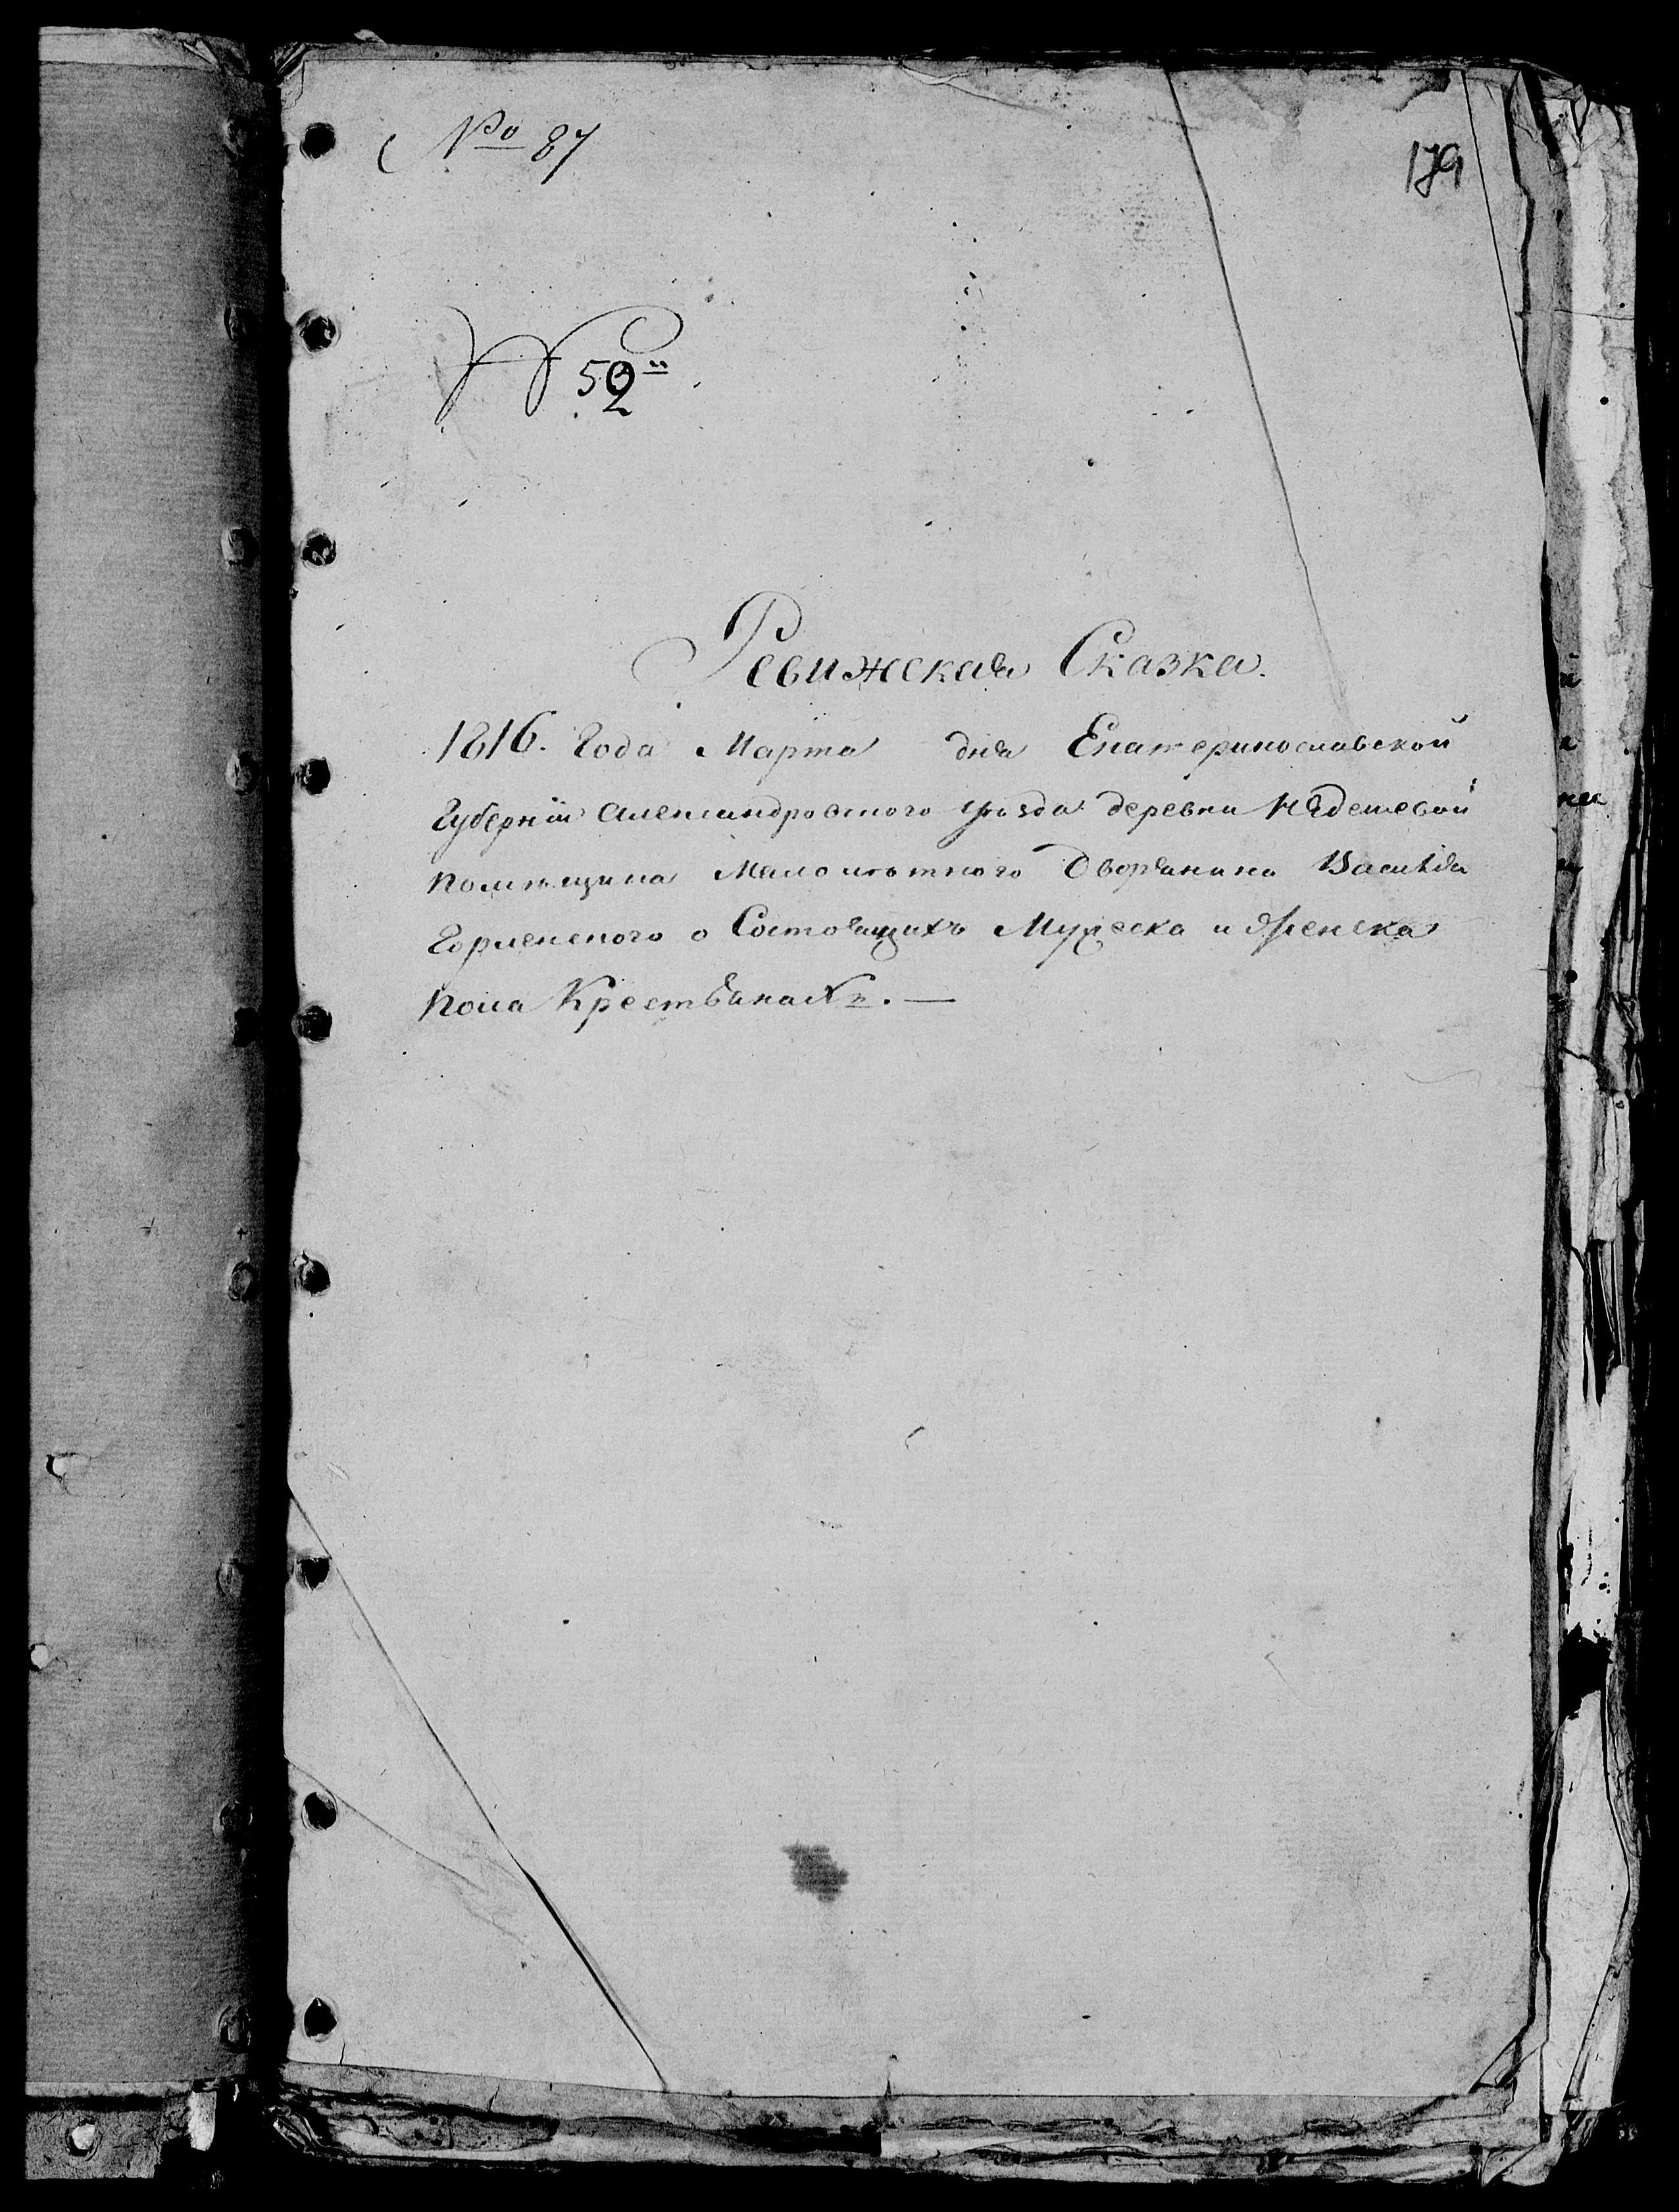 № 87
179
№ 52
Ревижская Сказка.
1816. Года Марта дня Екатеринославской
Губерніи Александровского уѣзда деревни
помѣщика Малолѣтного Дворянина Василія
о Состоящихъ Мужеска и Женска
пола Крестьянахъ. —